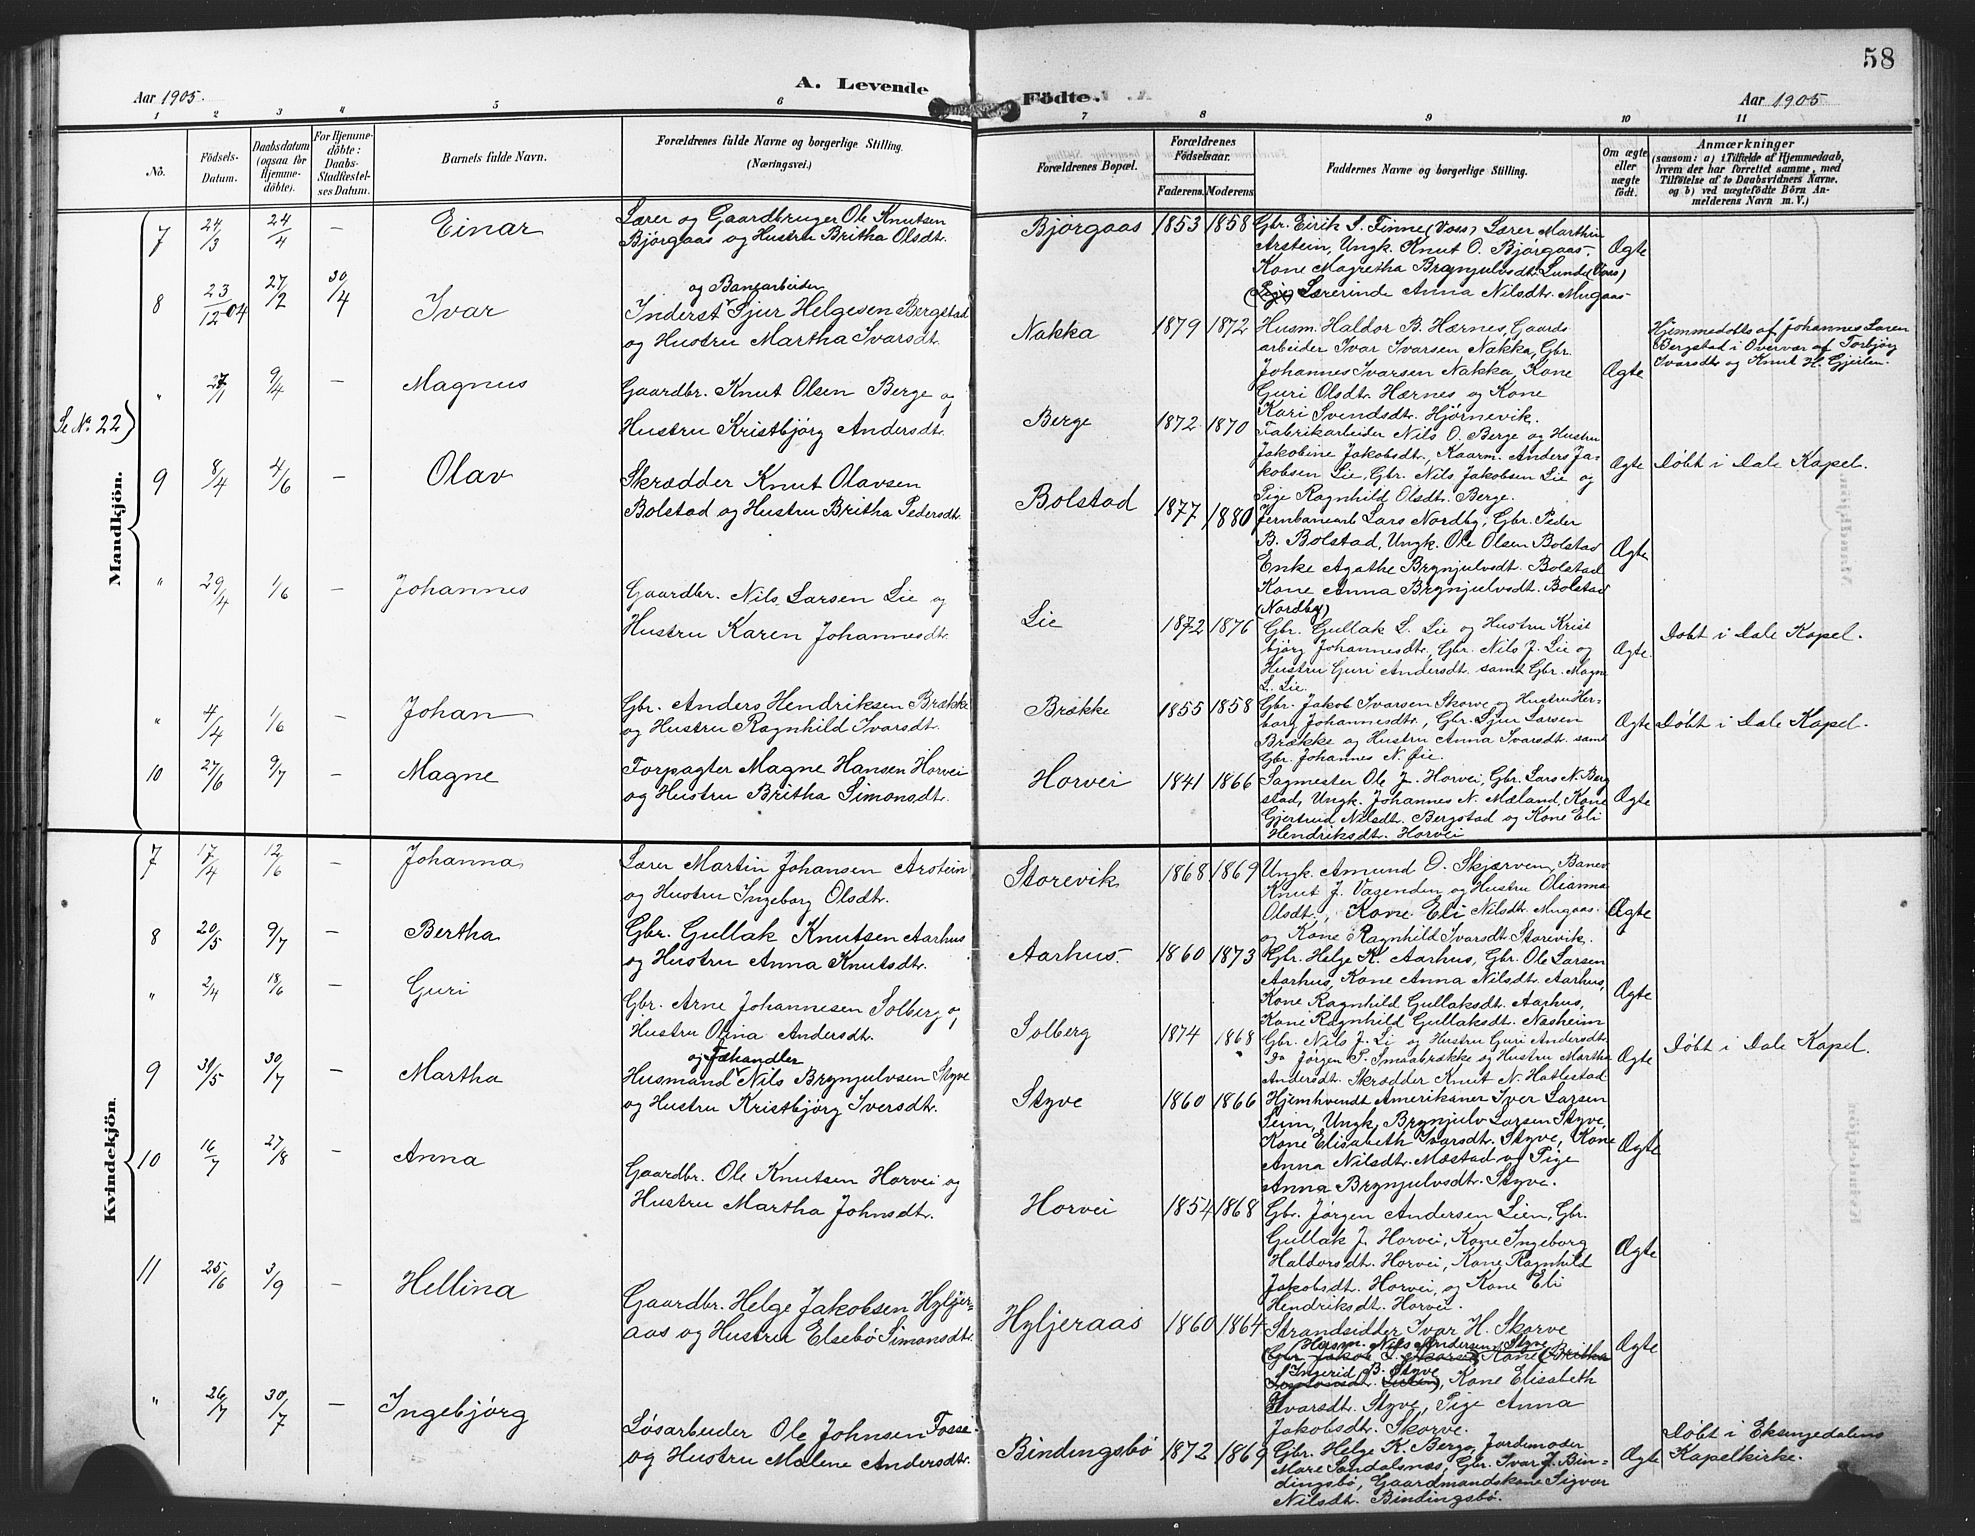 58
Aar 1905.
A. Levende
Födte.
Aar 1905
1 2 3 4 5 6 7 8 9 10 11
No.
Födsels-
Datum.
Daabsdatum
(ogsaa for
Hjemme-
döbte).
For Hjemme-
döbte:
Daabs-
Stadfæstel-
ses Datum.
Barnets fulde Navn.
Forældrenes fulde Navne og borgerlige Stilling.
(Næringsvei.)
Forældrenes Bopæl.
Forældrenes
Födselsaar.
Faderens. Moderens.
Faddernes Navne og borgerlige Stilling.
Om ægte
eller
uægte
födt.
Anmærkninger
(saasom: a) i Tilfælde af Hjemmedaab,
hvem der har forrettet samme, med
Tilföielse af to Daabsvidners Navne,
og b) ved uægtefödte Börn An-
melderens Navn m. V.)
Mandkjön.
7 24/3 24/4 — Einar
Lærer og Gaardbruger Ole Knutsen
Bjørgaas og Hustru Britha Olsdt.
Bjørgaas 1853 1858
Gbr. Eirik S. Finne (Voss) Lærer Marthin
Arstein, Ungk. Knut O. Bjørgaas-
Kone Magretha Brynjulvsdt. Lunde (Voss)
(Pige) Lærerinde Anna Nilsdt. Mugaas-
Ægte
8 23/12 04 27/2 30/4 Ivar
og Banearbeider
Inderst Sjur Helgesen Bergstad
og Hustru Martha Ivarsdt.
Nakka 1879 1872
Husm. Haldor B. Hærnes, Gaards
arbeider Ivar Ivarsen Nakka, Gbr.
Johannes Ivarsen Nakka, Kone
Guri Olsdt. Hærnes og Kone
Kari Svendsdt. Hjørnevik.
Ægte
Hjemmedøbts af Johannes Larsen
Bergstad i Overvær af Torbjør
Ivarsdt. og Knut H. Gjeilen.
Se No. 22)
" 27/1 9/4 — Magnus
Gaardbr. Knut Olsen Berge og
Hustru Kristbjørg Andersdt.
Berge 1872 1870
Fabrikarbeider Nils O. Berge og Hustru
Jakobine Jakobsdt., Kaarm. Anders Ja-
kobsen Lie, Gbr. Nils Jakobsen Lie og
Pige Ragnhild Olsdt. Berge.
Ægte
Døbt i Dale Kapel.
9 8/4 4/6 — Olav
Skrædder Knut Olavsen
Bolstad og Hustru Britha Pedersdt.
Bolstad 1877 1880
Jernbanearb Lars Nordby, Gbr. Peder
B. Bolstad, Ungk. Ole Olsen Bolstad
Enke Agathe Brynjulvsdt. Bolstad
Kone Anna Brynjulvsdt. Bolstad
(Nordby)
Ægte
" 29/4 1/6 — Johannes
Gaardbr. Nils Larsen Lie og
Hustru Karen Johannesdt.
Lie 1872 1876
Gbr. Gullak L. Lie og Hustru Krist
bjørg Johannesdt., Gbr. Nils J. Lie og
Hustru Guri Andersdt. samt Gbr. Magne
L. Lie.
Ægte.
Døbt i Dale Kapel.
" 4/4 1/6 — Johan
Gbr. Anders Hendriksen Brække
og Hustru Ragnhild Ivarsdt.
Brække 1855 1858
Gbr. Jakob Ivarsen Skorve og Hustru Her-
borg Johannesdt., Gbr. Sjur Larsen
Brække og Hustru Anna Ivarsdt. samt
Gbr. Johannes N. Øie.
Ægte
Døbt i Dale Kapel.
10 27/6 9/7 — Magne
Forpagter Magne Hansen Horvei
og Hustru Britha Simonsdt.
Horvei 1841 1866
Sagmester Ole J. Horvei, Gbr. Lars N. Berg
stad, Ungk. Johannes N. Mæland, Kone
Gjertrud Nilsdt. Bergstad og Kone Eli
Hendriksdt. Horvei
Ægte
Kvindekjön
7 17/4 12/6 — Johanna
Lærer Martin Johansen Arstein
og Hustru Ingeborg Olsdt.
Storevik 1868 1869
Ungk. Amund O. Skjærven, Banev.
Knut J. Vasenden og Hustru Olianna
Olsdt., Kone Eli Nilsdt. Mugaas.
og Kone Ragnhild Ivarsdt. Storevik.
Ægte
8 20/5 9/7 — Bertha
Gbr. Gullak Knutsen Aarhus
og Hustru Anna Knutsdt.
Aarhus. 1860 1873
Gbr. Helge K. Aarhus, Gbr. Ole Larsen
Aarhus, Kone Anna Nilsdt. Aarhus,
Kone Ragnhild Gullaksdt. Aarhus,
Kone Ragnhild Gullaksdt. Næsheim
Ægte
" 2/4 18/6 — Guri
Gbr. Arne Johannesen Solberg og
Hustru Olina Andersdt.
Solberg 1874 1868
Gbr. Nils J. Li og Hustru Guri Andersdt.
Do Jørgen P. Smaabrække og Hustru Martha
Andersdt. Skrædder Knut N. Hatlestad
Ægte
Døbt i Dale Kapel.
9 31/5 30/7 — Martha
og Fæhandler
Husmand Nils Brynjulvsen Styve
og Hustru Kristbjørg Iversdt.
Styve 1860 1866
Hjemhvendt Amerikaner Iver Larsen
Seim, Ungk. Brynjulv Larsen Styve,
Kone Elisabeth Ivarsdt. Styve, Kone
Anna Nilsdt. Mæstad og Pige
Anna Brynjulvsdt. Styve.
Ægte
10 16/7 27/8 — Anna
Gaardbr. Ole Knutsen Horvei og
Hustru Martha Johnsdt.
Horvei 1854 1868
Gbr. Jørgen Andersen Lien, Gbr.
Gullak J. Horvei, Kone Ingeborg
Haldorsdt. Horvei, Kone Ragnhild
Jakobsdt. Horvei, og Kone Eli
Hendriksdt. Horvei.
Ægte
11 25/6 3/9 — Hellina
Gaardbr. Helge Jakobsen Hyljer-
aas og Hustru Elsebø Simonsdt.
Hyljeraas 1860 1864
Strandsidder Ivar H. Skorve
Husm. Nils Andersen Styve
(Gbr. Jakob Kone (Britha
Ingerid B. Styve
Kone Elisabeth
Ivarsdt. Styve, Pige Anna
Jakobsdt. Skorve.
Ægte
" 26/7 30/7 — Ingebjørg
Løsarbeider Ole Johnsen Fosse
og Hustru Malene Andersdt.
Bindingsbø 1872 1869
Gbr. Helge K. Berge, Jordemoder
Mare Sandalsnæs, Gbr. Ivar J. Bin-
dingsbø, Gaardmandskone Sigvor
Nilsdt. Bindingsbø.
Ægte
Døbt i Eksingedalens
Kapelkirke.